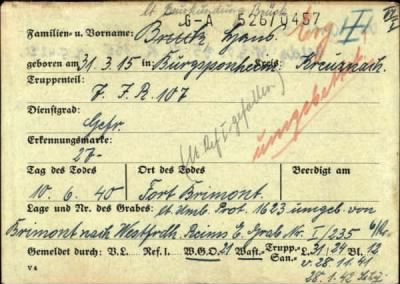 G-A 526/0457
Familien- u. Vorname: Hans.
geboren am 31.3.15 in Burgsponheim Kreis: Kreuznach
Truppenteil:
7. J.R. 107
Dienstgrad:
Gefr.
Erkennungsmarke:
-27-
umgebettet
Tag des Todes Ort des Todes Beerdigt am
10. 6. 40 Fort Brimont.
Lage und Nr. des Grabes: lt. Umb. Prot. 1623 umgeb. von
Brimont nach Westfrdh. Reims G. Grab Nr. I/235
Gemeldet durch: V.L. Ref. I. W.G.O. 21 Wast.- Trupp.- San.- L. 31/24 Bl. 12
v. 28.11.41
28.1.42
V 4